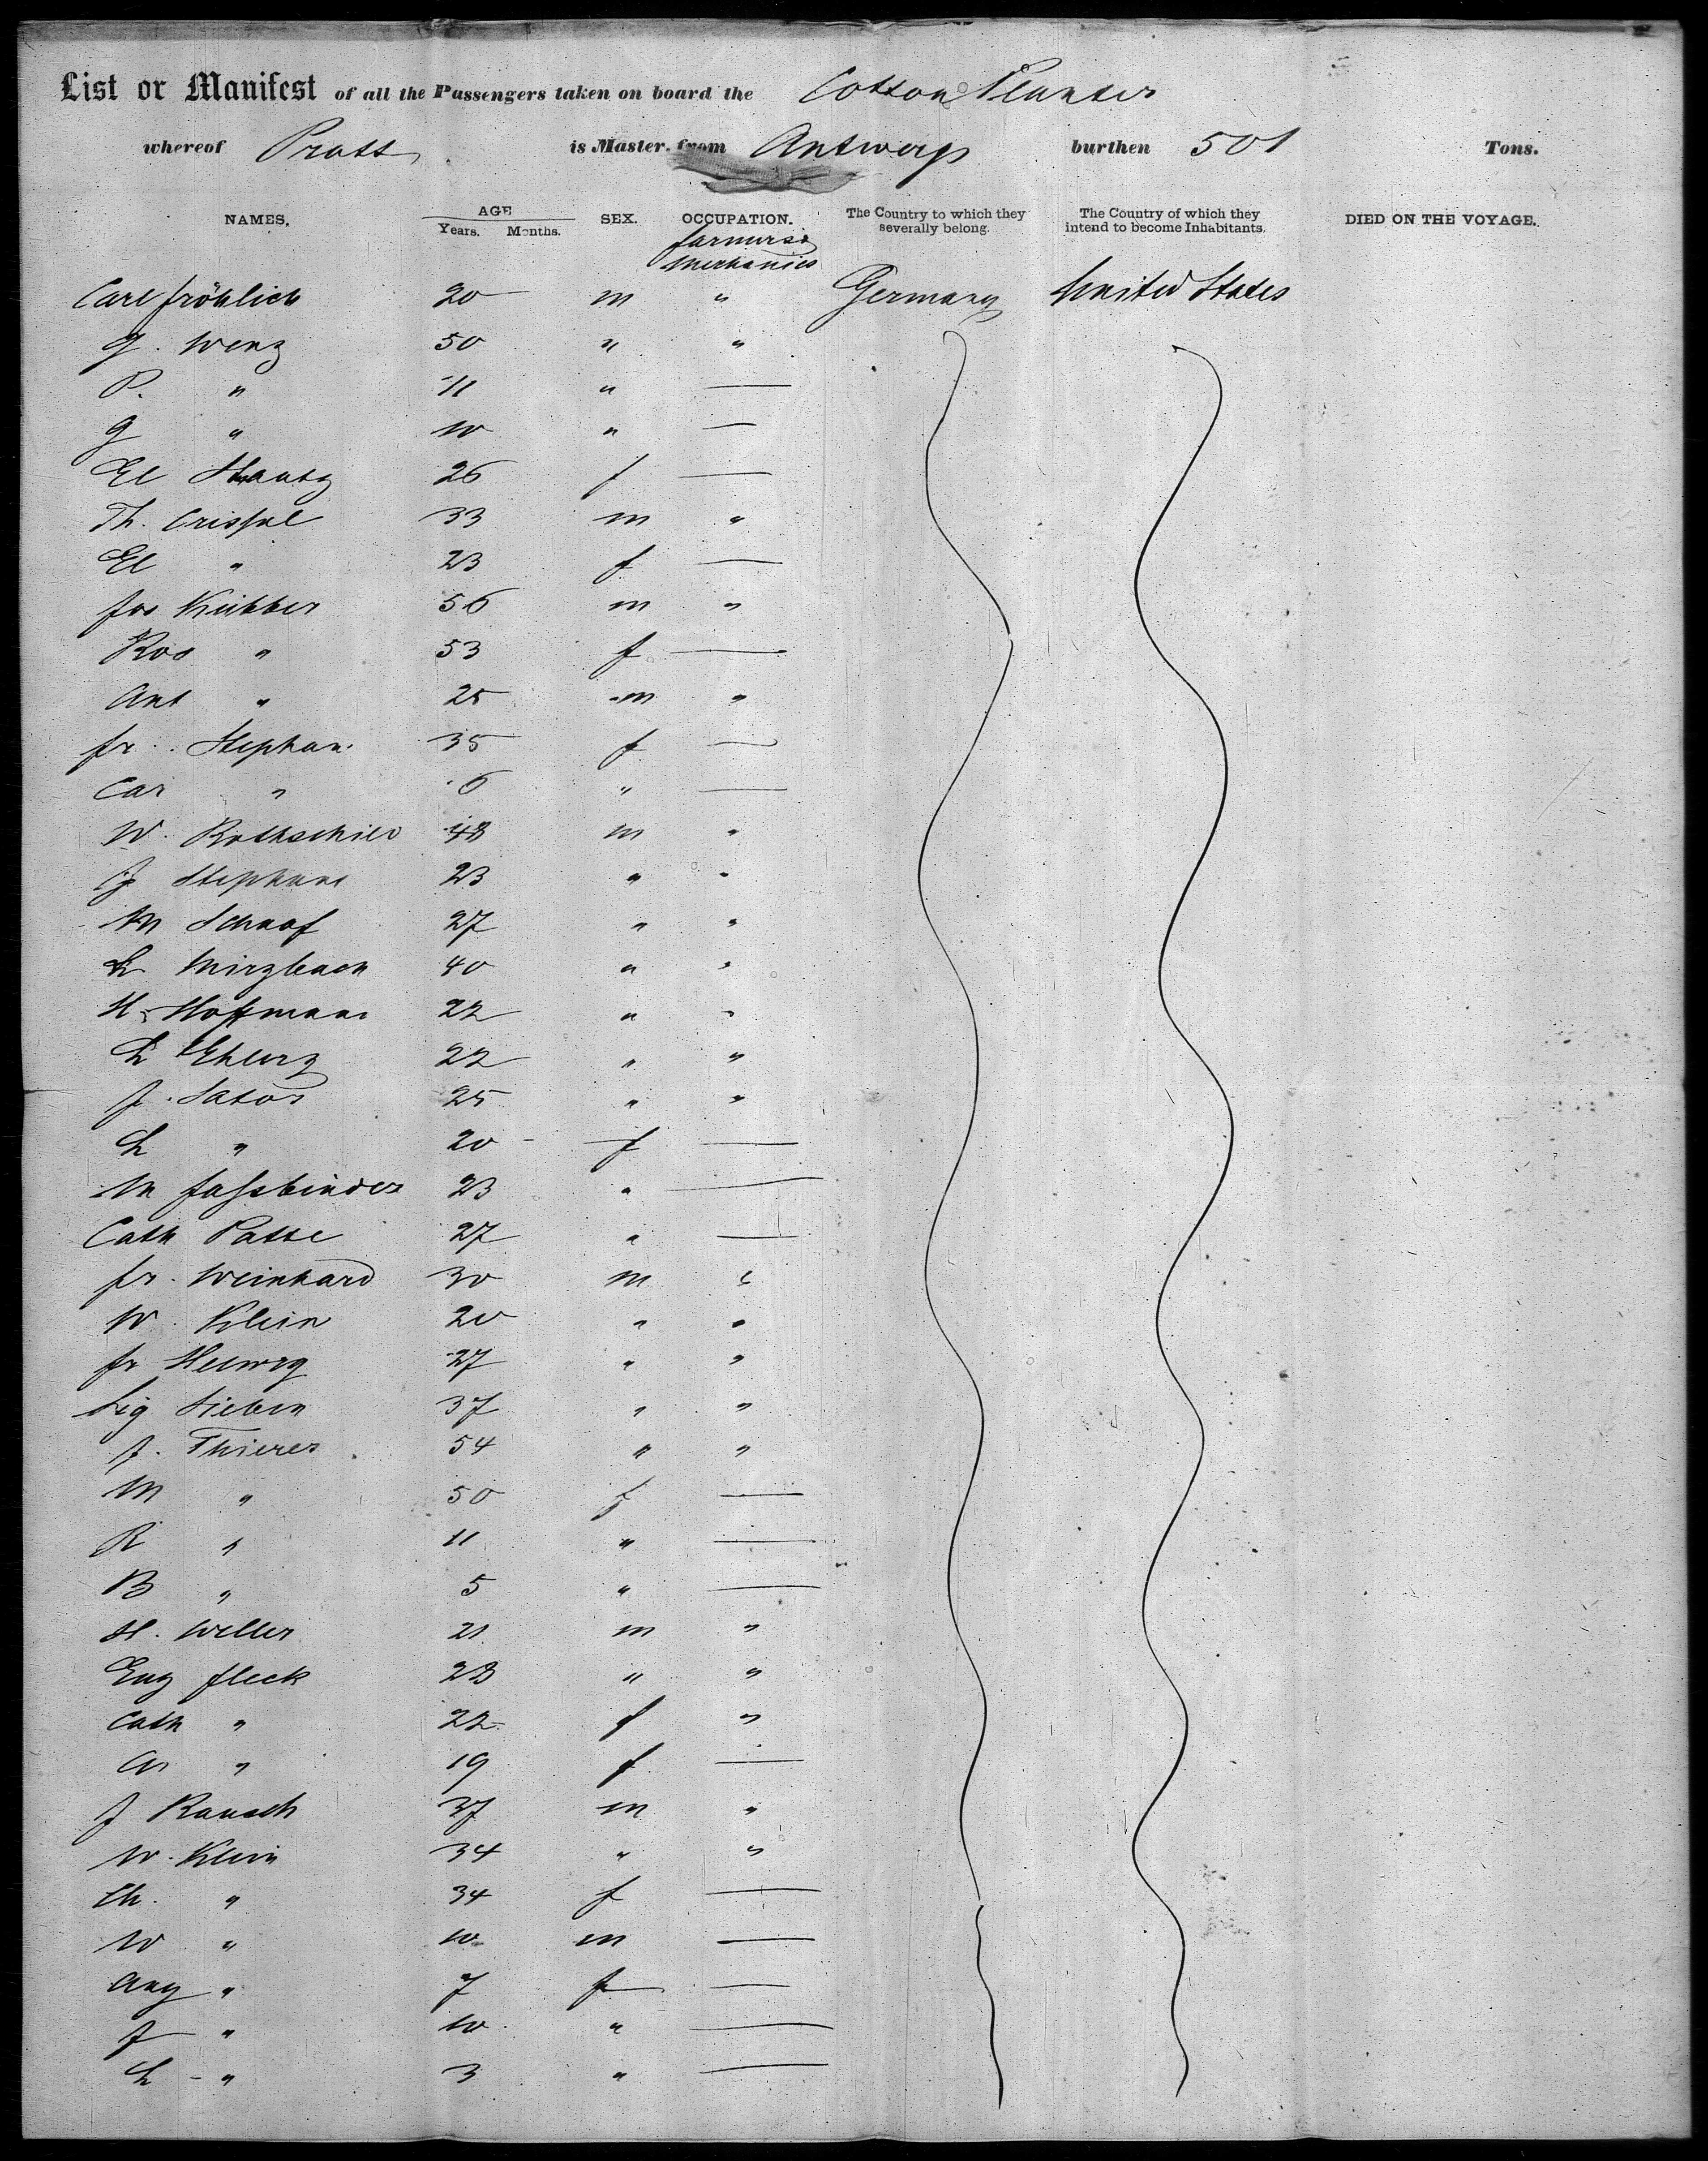 List or Manifest of all the Passengers taken on board the Cotton Planter
whereof Pratt is Master, from Antwerp burthen 501 Tons.
NAMES. AGE Years. Months. SEX. OCCUPATION. The Country to which they severally belong. The Country of which they intend to become Inhabitants. DIED ON THE VOYAGE.
farmers &
mechanics
Carl fröhlich 20 m " Germany United States
G. Wenz 50 " "
P. " 11 " —
G " 10 " —
El 26 f —
Th. 33 m "
El " 23 f —
Jos 56 m "
Ros " 53 f —
Ant " 25 m "
fr. Stephan 35 f —
Car " 6 " —
W. Rothschild 48 m "
J Stephan 23 " "
M Schaaf 27 " "
L 40 " "
H. Hoffmann 22 " "
L 22 " "
J. 25 " "
L " 20 f —
M fassbinder 23 " —
Cath Passe 27 " —
fr. Weinhard 30 m "
W. Klein 20 " "
fr Helwig 27 " "
Sieben 37 " "
J. Thierer 54 " "
M " 50 f —
R " 11 " —
B " 5 " —
H. Weller 21 m "
Eug fleck 28 " "
Cath " 22 f "
" 19 f —
J Rausch 37 m "
W. Klein 34 " "
Ch. " 34 f —
W " 10 m —
Aug " 7 f —
J " 10 " —
L " 3 " —